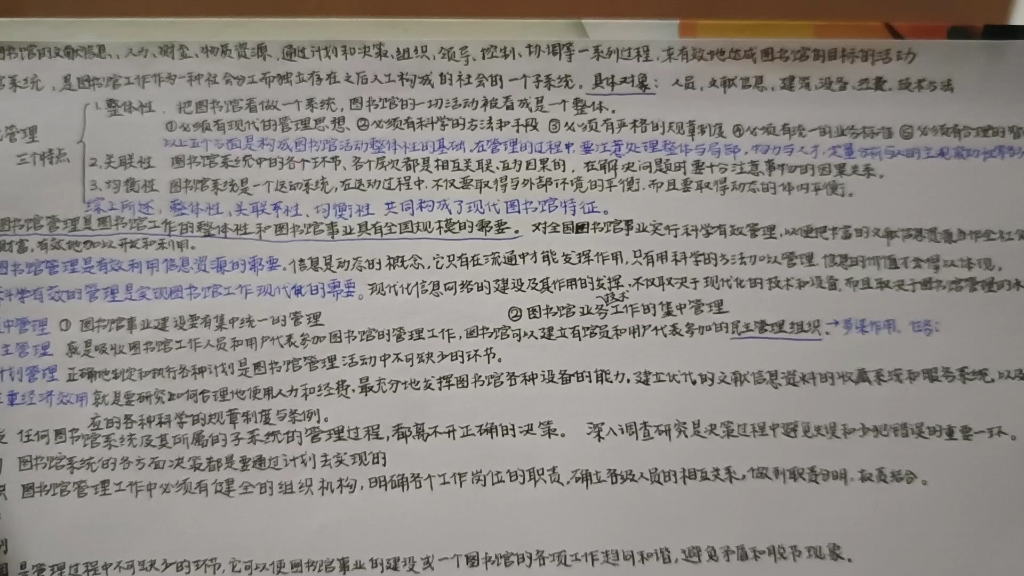 图书馆的文献信息、人力、财金、物质资源,通过计划和决策、组织、领导、控制、协调等一系列过程,来有效地达成图书馆的目标的活动
系统,是图书馆工作作为一种社会分工而独立存在之后人工构成的社会的一个子系统。具体对象:人员,文献信息,建筑,设备,经费,技术方法
管理 1.整体性 把图书馆看做一个系统,图书馆的一切活动被看成是一个整体。
三个特点 ①必须有现代的管理思想、②必须有科学的方法和手段 ③必须有严格的规章制度 ④必须有统一的业务标准 ⑤必须有合理的
以上五个方面是构成图书馆活动整体性的基础,在管理的过程中要注意处理整体与局部,物力与人才,定量分析与人的主观能动性
2.关联性 图书馆系统中的各个环节、各个层次都是相互关联、互为因果的,在解决问题时要十分注意事物的因果关系。
3.均衡性 图书馆系统是一个运动系统,在运动过程中,不仅要取得与外部环境的平衡,而且要取得动态的体内平衡。
综上所述,整体性、关联系性、均衡性 共同构成了现代图书馆特征。
图书馆管理是图书馆工作的整体性和图书馆事业具有全国规模的需要。对全国图书馆事业实行科学有效管理,以便把丰富的文献信息资源
财富,有效地加以开发和利用。
图书馆管理是有效利用信息资源的需要。信息是动态的概念,它只有在流通中才能发挥作用,只有用科学的方法加以管理 信息的价值才会得以体现,
科学有效的管理是实现图书馆工作现代化的需要。现代化信息网络的建设及其作用的发挥,不仅取决于现代化的技术和设备,而且取决于图书馆管理的水
中管理 ① 图书馆事业建设要有集中统一的管理 ② 图书馆业务技术工作的集中管理
主管理 就是吸收图书馆工作人员和用户代表参加图书馆的管理工作,图书馆可以建立有馆员和用户代表参加的民主管理组织。→参谋作用、任务:
计划管理 正确地制定和执行各种计划是图书馆管理活动中不可缺少的环节。
重经济效用 就是要研究如何合理地使用人力和经费,最充分地发挥图书馆各种设备的能力,建立优化的文献信息资料的收藏系统和服务系统,以及
应的各种科学的规章制度与条例。
任何图书馆系统及其所属的子系统的管理过程,都离不开正确的决策。 深入调查研究是决策过程中避免失误和少犯错误的重要一环。
图书馆系统的各方面决策都是要通过计划去实现的
织 图书馆管理工作中必须有健全的组织机构,明确各个工作岗位的职责,确立各级人员的相互关系,做到职责分明,权责结合。
制
调 是管理过程中不可缺少的环节,它可以使图书馆事业的建设或一个图书馆的各项工作趋向和谐,避免矛盾和脱节现象。